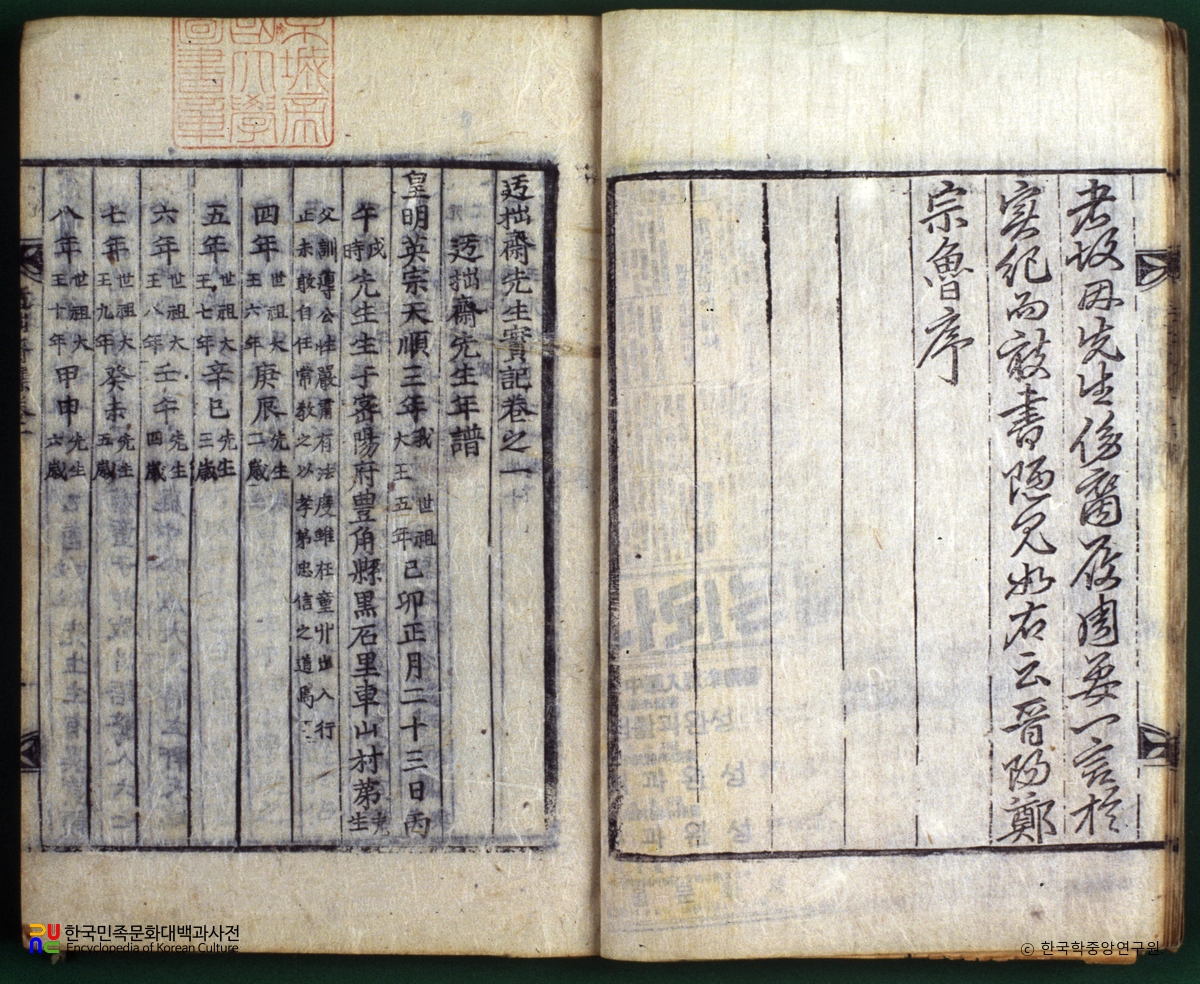 者故因先生傍裔履周要一言於
實紀而敢書陋見如右云晉陽鄭
宗魯序
京城帝
國大學
圖書章
迃拙齋先生實記卷之一
迃拙齋先生年譜
皇明英宗天順三年我世祖大王五年己卯正月二十三日丙
午戌時先生生于密陽府豊角縣黑石里車山村第先生
父訓薄公性嚴肅有法度雖在童丱出入行
正未敢自任常敎之以孝弟忠信之道焉
四年世祖大王六年庚辰先生二歲
五年世祖大王七年辛巳先生三歲
六年世祖大王八年壬午先生四歲
七年世祖大王九年癸未先生五歲
八年世祖大王十年甲申先生六歲
한국민족문화대백과사전
Encyclopedia of Korean Culture
ⓒ 한국학중앙연구원